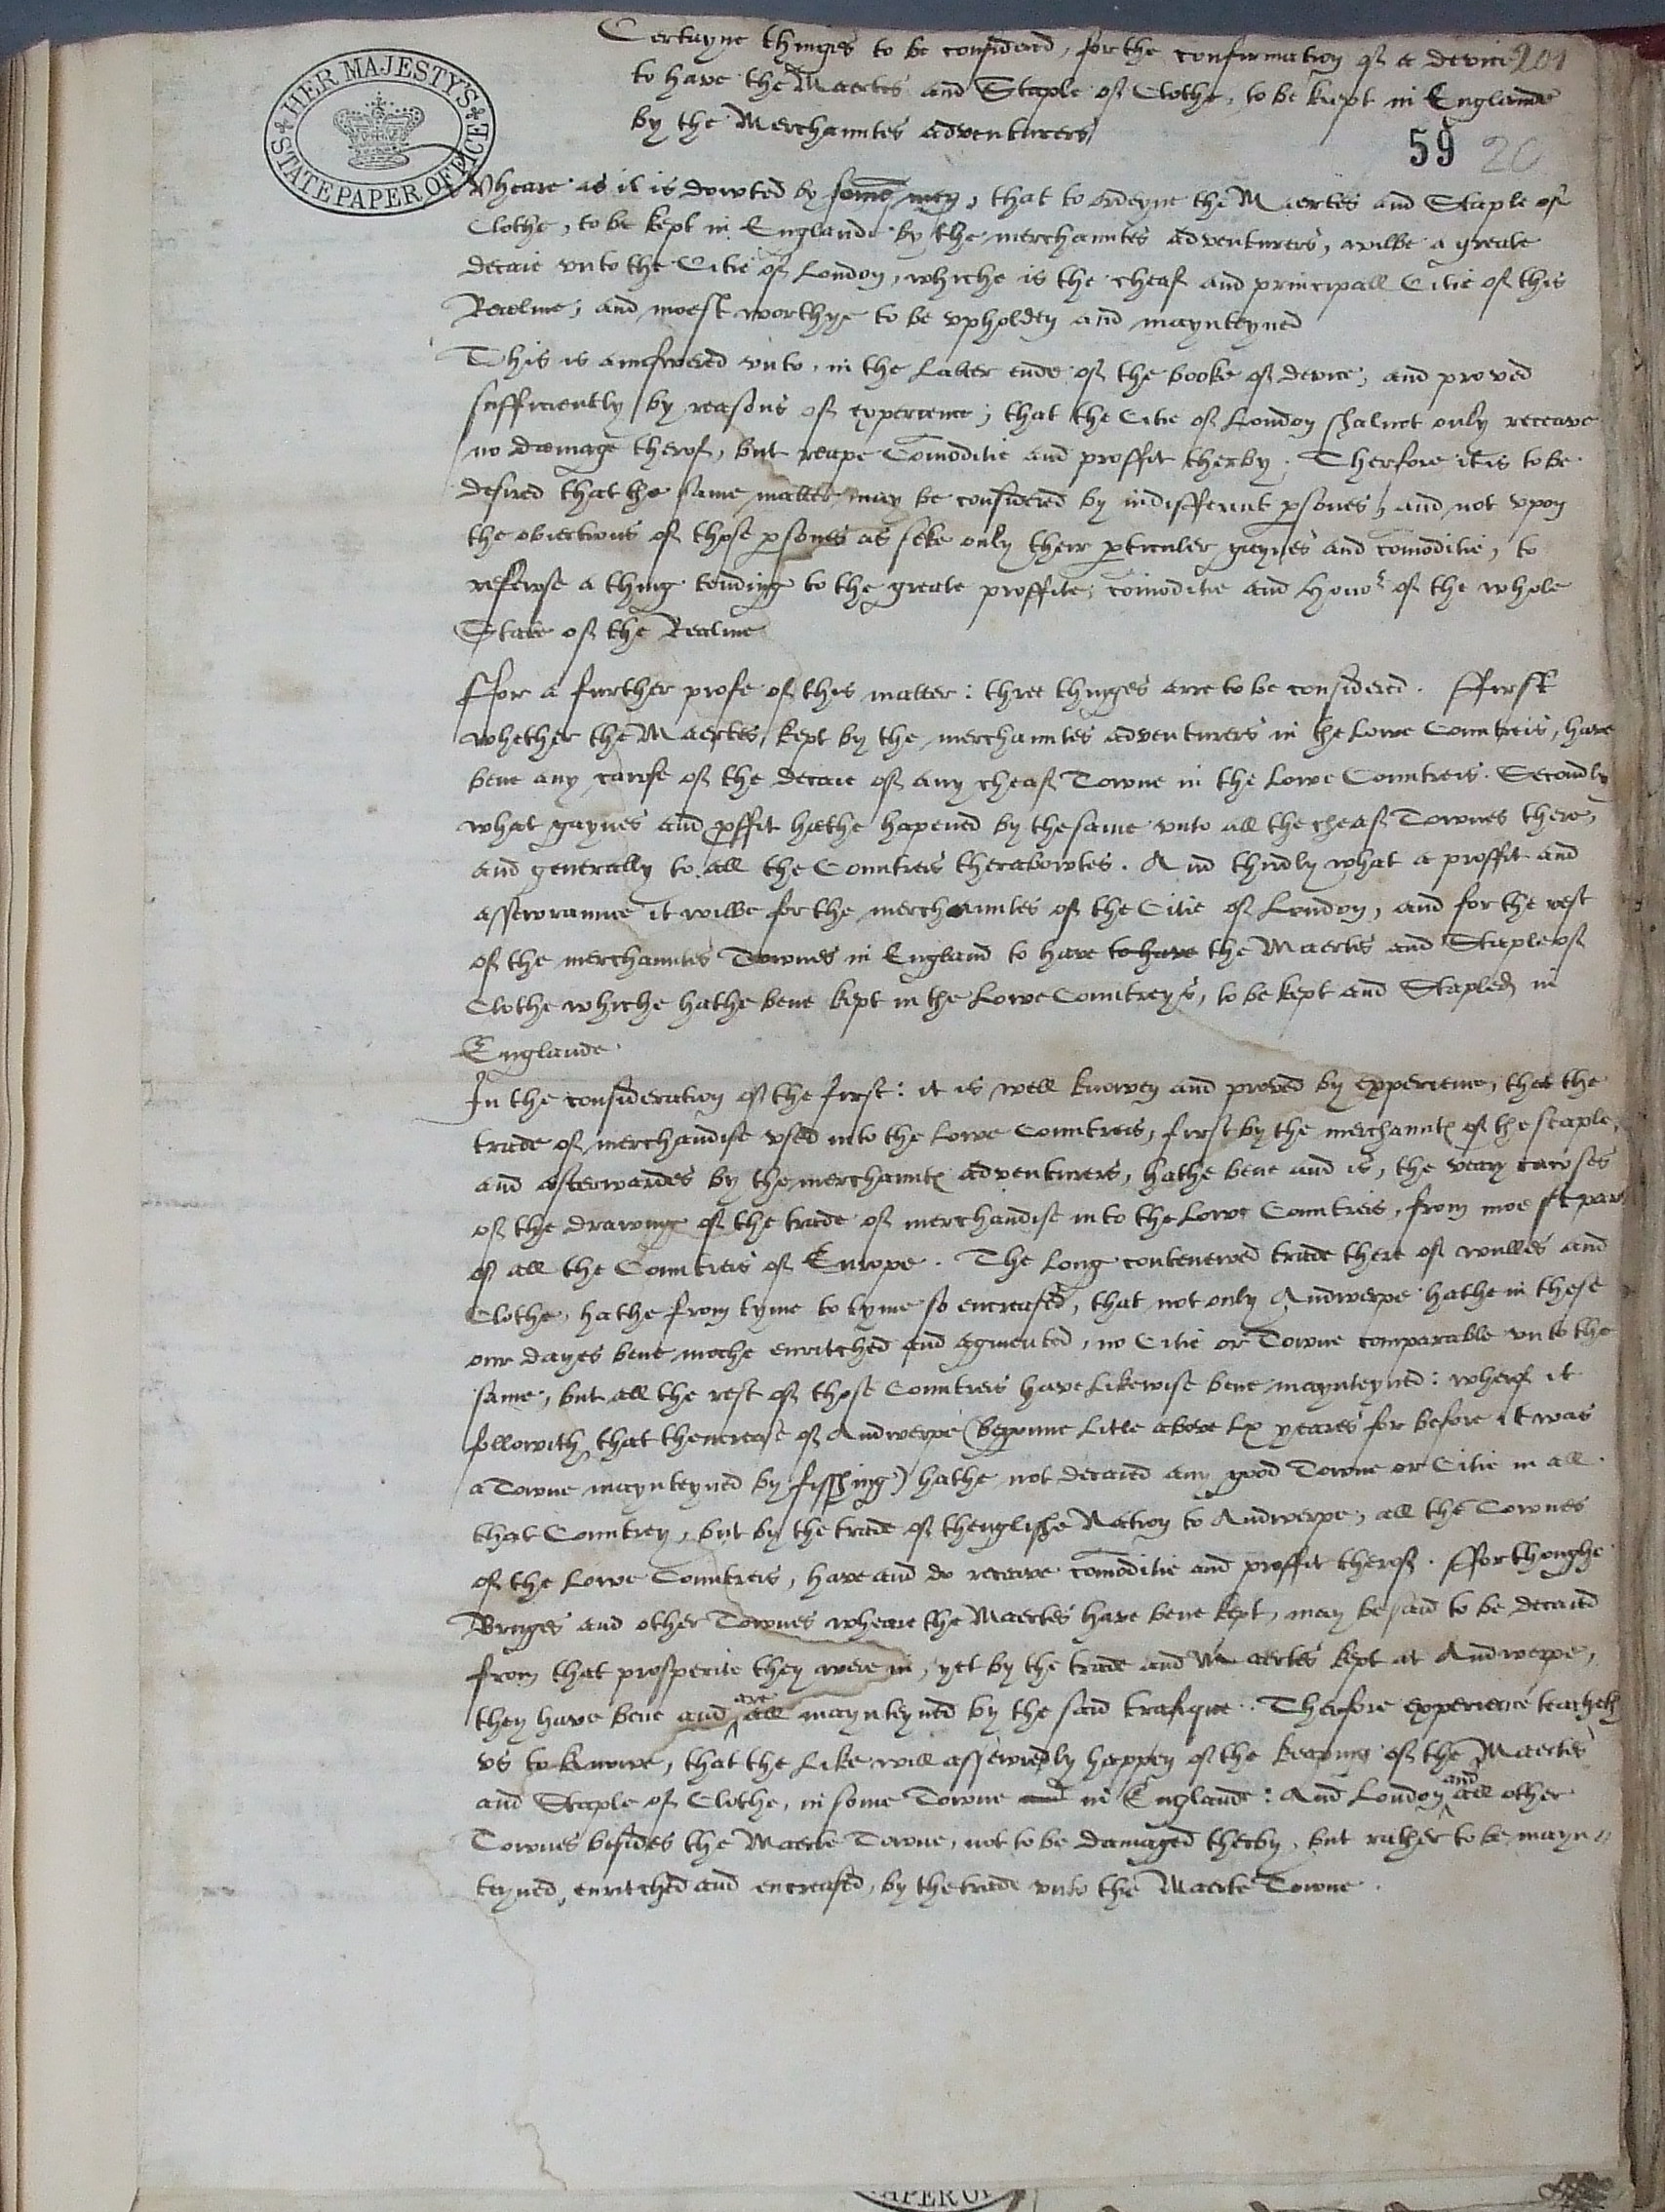 Certayne thinges to be considered, for the confirmation of a device 201
to have the Maertes and Staple of Clothe, to be kept in Englande
by the Merchauntes adventurers
59 20
HER MAJESTY'S STATE PAPER OFFICE
Wheare as it is dowted by some men, that to ordeyne the Maertes and Staple of
Clothe, to be kept in Englande by the merchauntes adventurers, wilbe a greate
decaie unto the Citie of London, whiche is the cheaf and principall Citie of this
Realme, and moest worthye to be upholden and maynteyned
This is aunswered unto, in the Latter ende of the booke of device, and proved
sufficiently by reasons of experience, that the Citie of London shalnot only receave
no damage therof, but reape Comoditie and proffit therby. Therfore it is to be
desired that the same matter may be considered by indifferent psones, and not upon
the obiections of those psones as seke only their pticuler gaynes and comoditie, to
refewse a thing tending to the greate proffite, comoditie and Honor of the whole
State of the Realme
Ffor a further profe of this matter: three thinges arre to be considered. Ffirst
whether the Maertes, kept by the merchauntes adventurers in the Lowe Countreis, have
bene any cawse of the decaie of any cheaf Towne in the Lowe Countreis. Secondly
what gaynes and pffit hathe hapened by the same unto all the cheaf Townes there,
and generally to all the Countreis therabowtes. And thirdly what a proffit and
assewraunce it wilbe for the merchauntes of the Citie of London, and for the rest
of the merchauntes Townes in England to have to have the Maertes and Staple of
Clothe whiche hathe bene kept in the Lowe Countreys, to be kept and Stapled in
Englande
In the consideration of the first: it is well knowen and proved by experience, that the
trade of merchandise used into the Lowe Countreis, first by the merchauntes of the staple,
and afterwardes by the merchauntes adventurers, hathe bene and is, the veary cawses
of the drawing of the trade of merchandise into the Lowe Countreis, from moest part
of all the Countreis of Europe. The Long contenewed trade there of wulles and
Clothe, hathe from tyme to tyme so encreased, that not only Andwerpe hathe in these
our dayes bene moche enritched and agmented, no Citie or Towne comparable unto the
same, but all the rest of those Countreis have Likewise bene maynteyned: wherof it
followith, that thencrease of Andwerpe (begonne Litle above Lx yeares for before it was
a Towne maynteyned by fisshing) hathe not decaied any good Towne or Citie in all
that Countrey, but by the trade of thenglishe Nation to Andwerpe, all the Townes
of the Lowe Countreis, have and do receave comoditie and proffit therof. Ffor thoughe
Bruges and other Townes wheare the Maertes have bene kept, may be said to be decaied
from that prosperite they were in, yet by the trade and Maertes kept at Andwerpe,
they have bene and are all maynteyned by the said trafique. Therfore experience teacheth
us to knowe, that the Like will assewredly happen of the keaping of the Maertes
and Staple of Clothe, in some Towne and in Englande: And London and all other
Townes besides the Maerte Towne, not to be damaged therby, but rather to be mayn//
teyned, enritched and encreased, by the trade unto the Maerte Towne.